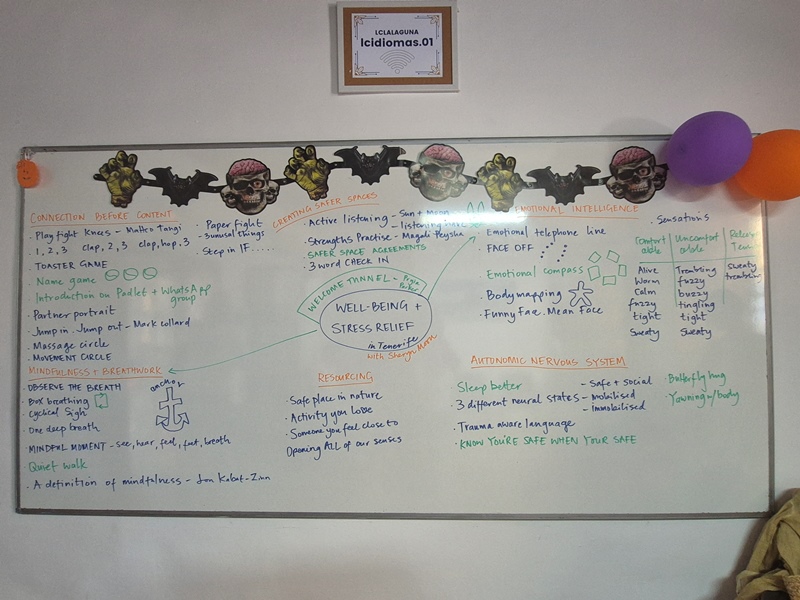 LCLALAGUNA
lcidiomas.01
CONNECTION BEFORE CONTENT
· Play fight Knees - Mahco Tangi
· 1, 2, 3 clap, 2, 3 clap, hop, 3
· TOASTER GAME
· Name game
· Introduction on Padlet + WhatsApp group
· Partner portrait
· Jump in. Jump out - Mark collard
· Massage circle
· MOVEMENT CIRCLE
· Paper fight
- 3 unusual things
· Step in IF.....
CREATING SAFER SPACES
· Active listening - Sun + Moon
- listening
· Strengths Practise - Magali Peysha
· SAFER SPACE AGREEMENTS
· 3 word CHECK IN
WELCOME TUNNEL - Priya Parker
WELL-BEING +
STRESS RELIEF
in Tenerife
with Sharyn Moon
EMOTIONAL INTELLIGENCE
· Emotional telephone line
· FACE OFF
· Emotional compass
· Bodymapping
· Funny Face. Mean Face
· Sensations
Comfortable
Alive
Warm
Calm
fuzzy
tight
Sweaty
Uncomfortable
Trembling
fuzzy
buzzy
tingling
tight
Sweaty
Sweaty
trembling
MINDFULNESS + BREATHWORK
· OBSERVE THE BREATH
· Box breathing
· Cyclical Sigh
· One deep breath
anchor
· MINDFUL MOMENT - see, hear, feel, feet, breath
Quiet walk
· A definition of mindfulness - Jon Kabat-Zinn
RESOURCING
· Safe place in nature
· Activity you Love
· Someone you feel close to
Opening ALL of our senses
AUTONOMIC NERVOUS SYSTEM
· Sleep better
· 3 different neural states - Safe + social
- Mobilised
- Immobilised
· Trauma aware language
· KNOW YOU'RE SAFE WHEN YOUR SAFE
· Butterfly hug
· Yawning w/body